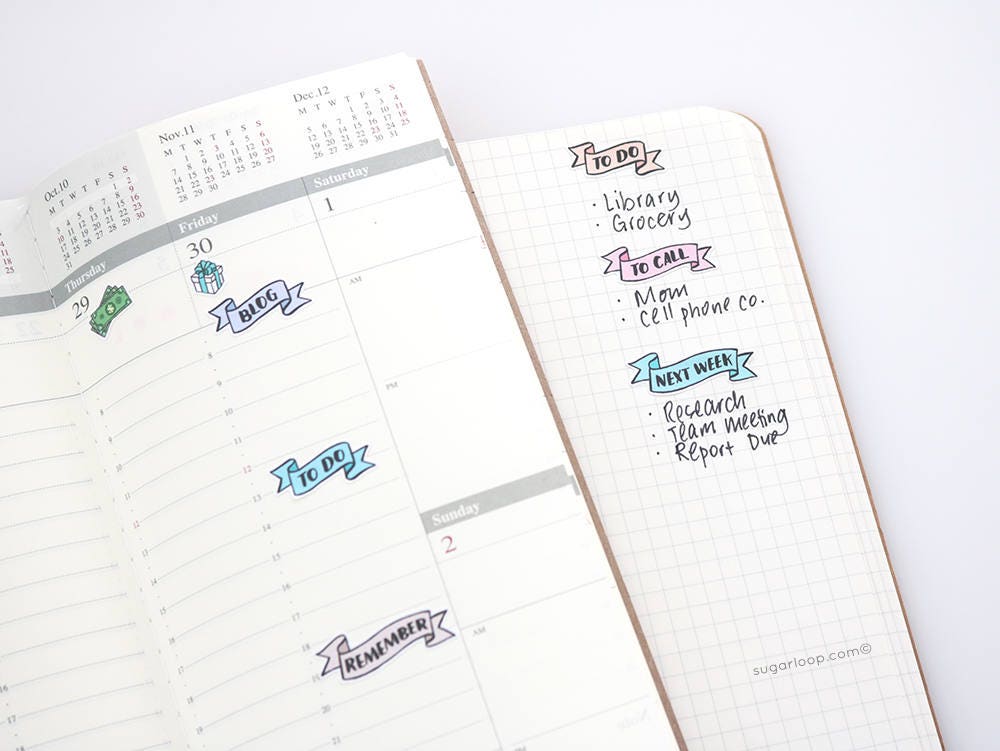 Oct.10
M T W T F S S
1 2
3 4 5 6 7 8 9
10 11 12 13 14 15 16
17 18 19 20 21 22 23
24 25 26 27 28 29 30
31
Nov.11
M T W T F S S
1 2 3 4 5 6
7 8 9 10 11 12 13
14 15 16 17 18 19 20
21 22 23 24 25 26 27
28 29 30
Dec.12
M T W T F S S
1 2 3 4
5 6 7 8 9 10 11
12 13 14 15 16 17 18
19 20 21 22 23 24 25
26 27 28 29 30 31
Thursday
29
12
13
14
15
16
17
18
19
20
Friday
30
BLOG
8
9
10
11
12
13
TO DO
14
15
16
17
18
19
REMEMBER
20
21
Saturday
1
AM
PM
Sunday
2
AM
TO DO
· Library
· Grocery
TO CALL
· Mom
· Cell phone co.
NEXT WEEK
· Research
· Team Meeting
· Report Due
sugarloop.com©